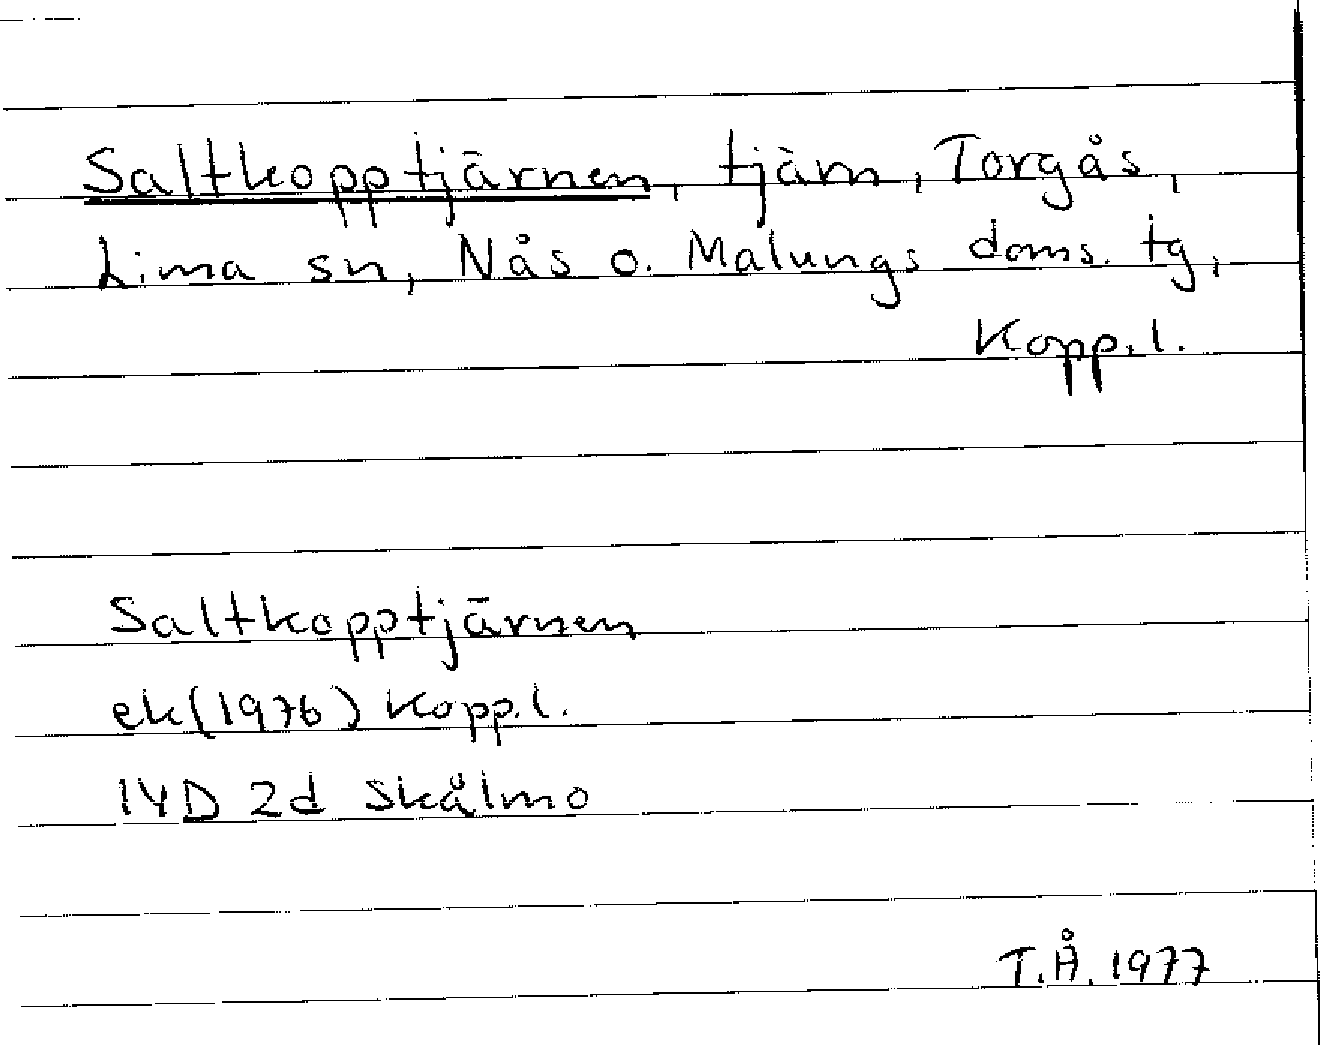 Saltkopptjärnen, tjärn, Torgås,
Lima sn, Nås o. Malungs doms. tg,
Kopp.l.
Saltkopptjärnen
ek(1976) Kopp.l.
14D 2d Skålmo
T.Å. 1977